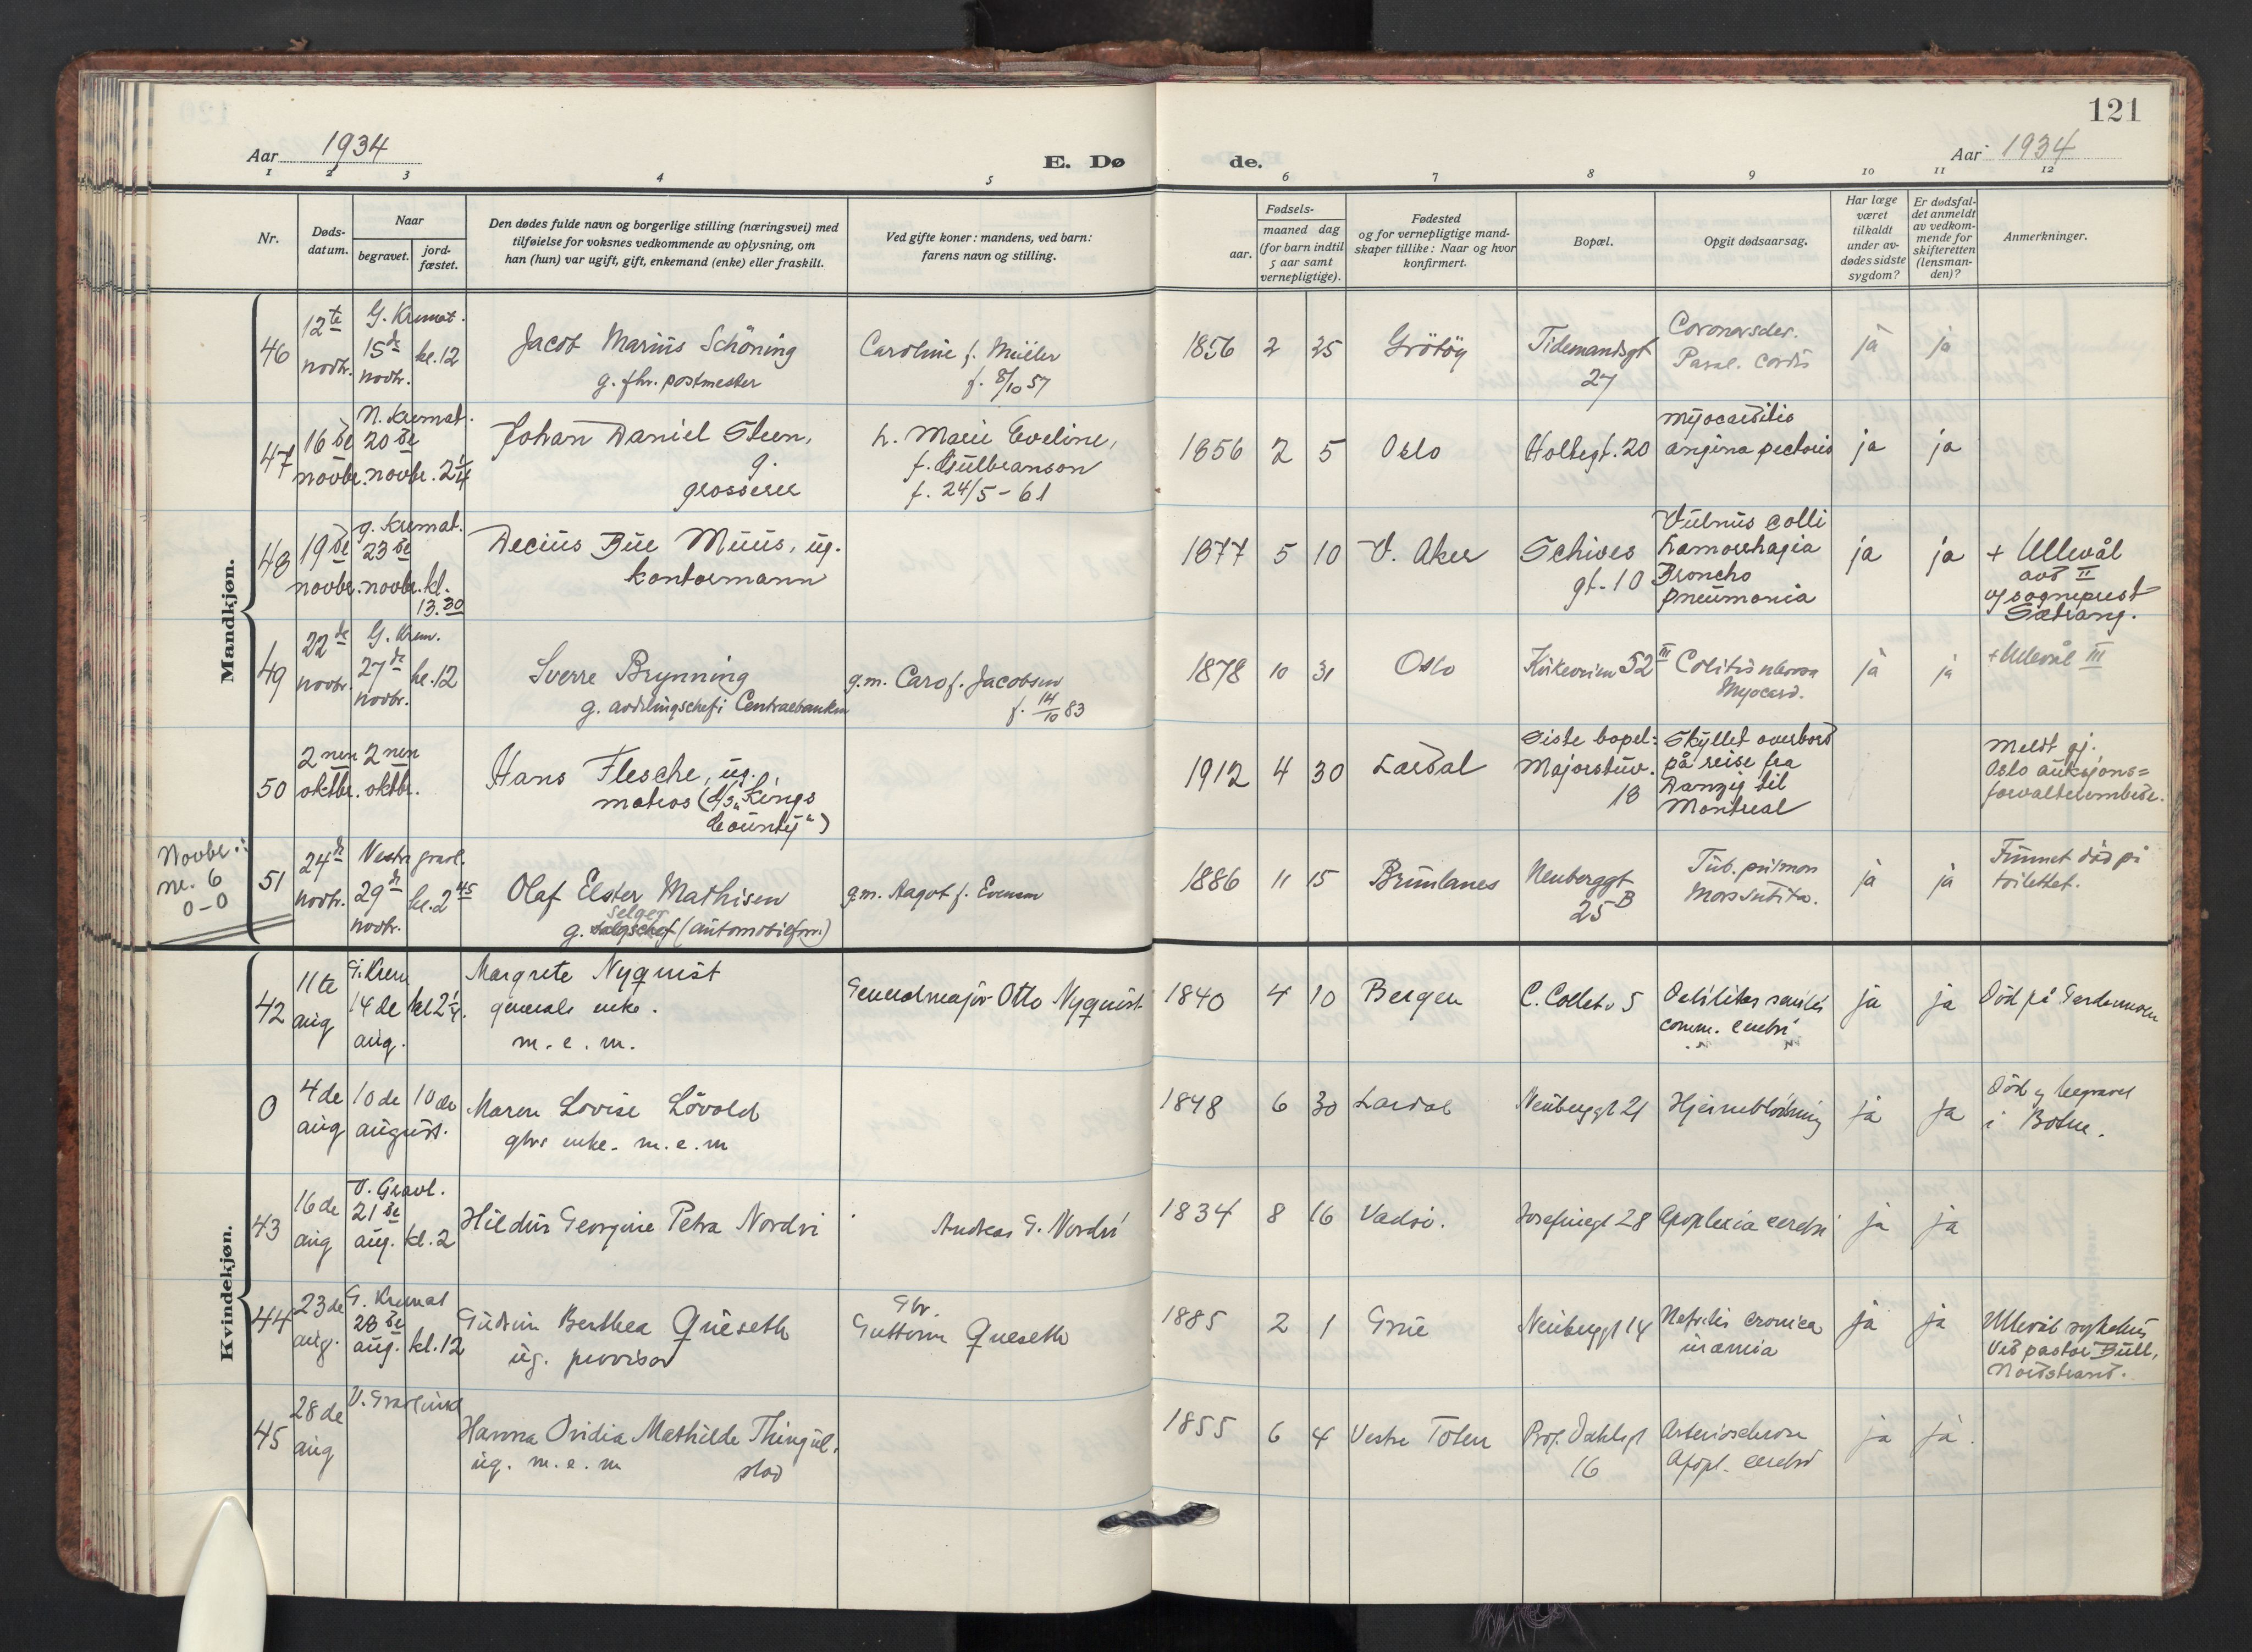 121
Aar 1934
E. Dø
de.
Aar 1934
1 2 3 4 5 6 7 8 9 10 11 12
Nr.
Døds-
datum.
Naar
begravet.
jord-
fæstet.
Den dødes fulde navn og borgerlige stilling (næringsvei) med
tilføielse for voksnes vedkommende av oplysning, om
han (hun) var ugift, gift, enkemand (enke) eller fraskilt.
Ved gifte koner: mandens, ved barn:
farens navn og stilling.
Fødsels-
aar.
maaned dag
(for barn indtil
5 aar samt
vernepligtige).
Fødested
og for vernepligtige mand-
skaper tillike: Naar og hvor
konfirmert.
Bopæl.
Opgit dødsaarsag.
Har læge
været
tilkaldt
under av-
dødes sidste
sygdom?
Er dødsfal-
det anmeldt
av vedkom-
mende for
skifteretten
(lensman-
den)?
Anmerkninger.
Mandkjøn.
46
12te
novbr.
G. Kremat.
15de
novbr.
kl. 12
Jacob Marius Schöning
g. fhv. postmester
Caroline f. Müller
f. 8/10 57
1856 2 25
Grötöy
Tidemandsgt
27
Paral. cordis
ja ja
47
16de
novbr.
N. Kremat.
20de
novbr. 2 1/4
Johan Daniel Steen,
g.
grosserer
h. Marie Eveline,
f. Gulbranson
f. 24/5-61
1856 2 5
Oslo
Holtegt. 20
Myocarditis
angina pectoris
ja ja
48
19de
novbr.
g. Kremat.
23de
novbr. kl.
13.30
Decius Bue Muus, ug.
kontormann
1877 5 10
V. Aker
Schives
gt. 10
Vulnus colli
Hæmorrhagia
Broncho
pneumonia
ja ja
+ Ullevål
avd II
v/ sogneprest
Sætrang.
49
22de
novbr.
G. Krem.
27de
novbr.
kl. 12
Sverre Brynning
g. avdelingschef i Centralbanken
g.m. Caro f. Jacobsen
f. 14/10 83
1878 10 31
Oslo
Kirkeveien 52 III
Colitis ulcerosa
Myocard.
ja ja
+ Ullevål III
50
2nen
oktbr.
2nen
oktbr.
Hans Flesche, ug.
matros (d/s "Kings
County")
1912 4 30
Lardal
Siste bopel:
Majorstuv.
18
Skyllet overbord
på reise fra
Danzig til
Montreal
Meldt gj.
Oslo auksjons=
forvalterembede.
Novbr.:
nr. 6
0-0
51
24de
novbr.
Vestre gravl.
29de
novbr.
kl. 2 45
Olaf Elster Mathisen
selger
g. salgschef (automobilfirm.)
g.m. Aagot f. Evensen
1886 11 15
Brunlanes
Neuberggt
25 B
Tub. pulmon
Mors subita.
ja ja
Funnet død på
toilettet.
Kvindekjøn.
42
11te
aug
G. Krem
14de
aug.
kl 2 1/4.
Margrete Nyquist
generals enke.
m. e. m.
Generalmajor Otto Nyquist
1840 4 10
Bergen
C. Collets v 5
Debilitas senilis
comm. cerebri
ja ja
Död på Gardermoen
0
4de
aug
10de
august.
10de
Maren Lovise Lövold
gbrs enke. m. e. m
1848 6 30
Lardal
Neuberggt 21
Hjerneblödning
ja ja
Död og begravet
i Botne.
43
16de
aug
V. Gravl.
21de
aug.
kl. 2
Hildur Georgine Petra Nordvi
Andreas G. Nordvi
1834 8 16
Vadsö.
Josefinegt 28
Apoplexia cerebri
ja ja
44
23de
aug.
G. Kremat
28de
aug.
kl. 12
Gudrun Berthea Quéseth
ug. provisor
Gbr.
Guttorm Queseth
1885 2 1
Grue
Neuberggt 14
Nefritis cronica
uræmia
ja ja
Ullevål sykehus
Ved pastor Bull,
Nordstrand.
45
28de
aug
V. Gravlund
Hanna Ovidia Mathilde Thingul-
stad
ug. m. e. m
1855 6 4
Vestre Toten
Prof. Dahlsgt
16
Arteriosclerose
Apopl. cerebri
ja ja.